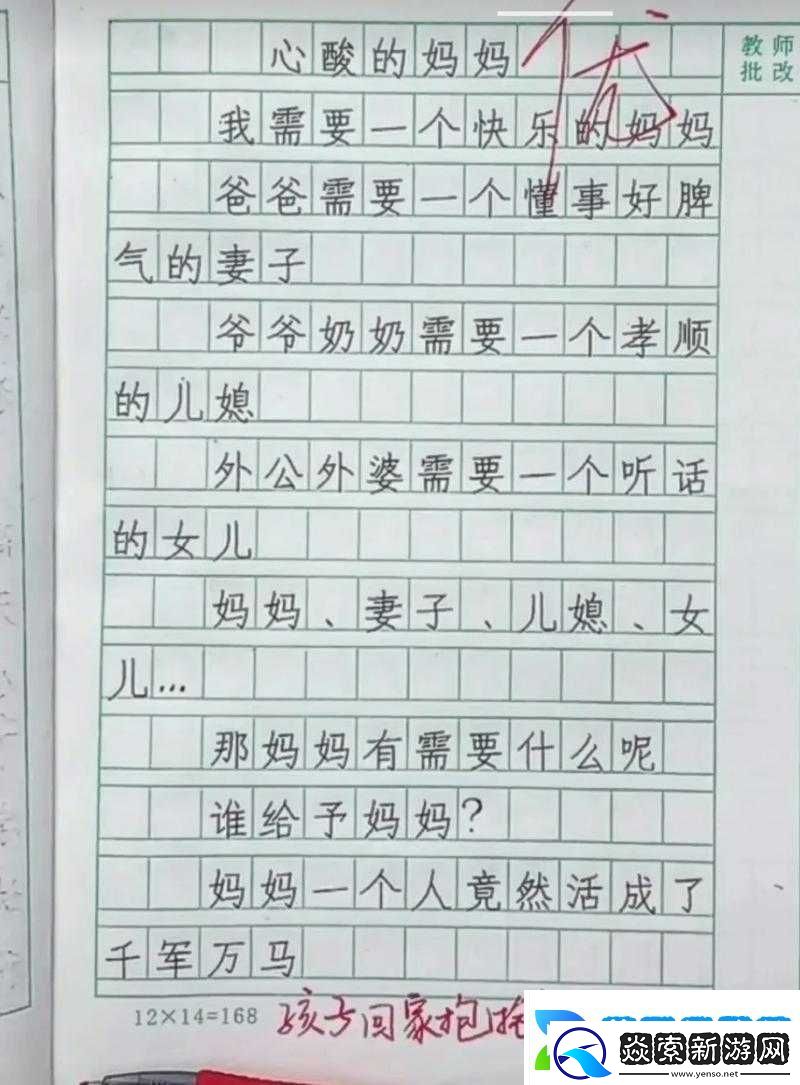 心酸的妈妈
优
教师
批改
我需要一个快乐的妈妈
爸爸需要一个懂事好脾
气的妻子
爷爷奶奶需要一个孝顺
的儿媳
外公外婆需要一个听话
的女儿
妈妈、妻子、儿媳、女
儿...
那妈妈有需要什么呢
谁给予妈妈?
妈妈一个人竟然活成了
千军万马
12×14=168
孩子回家抱抱
焱索新游网
www.yenso.net